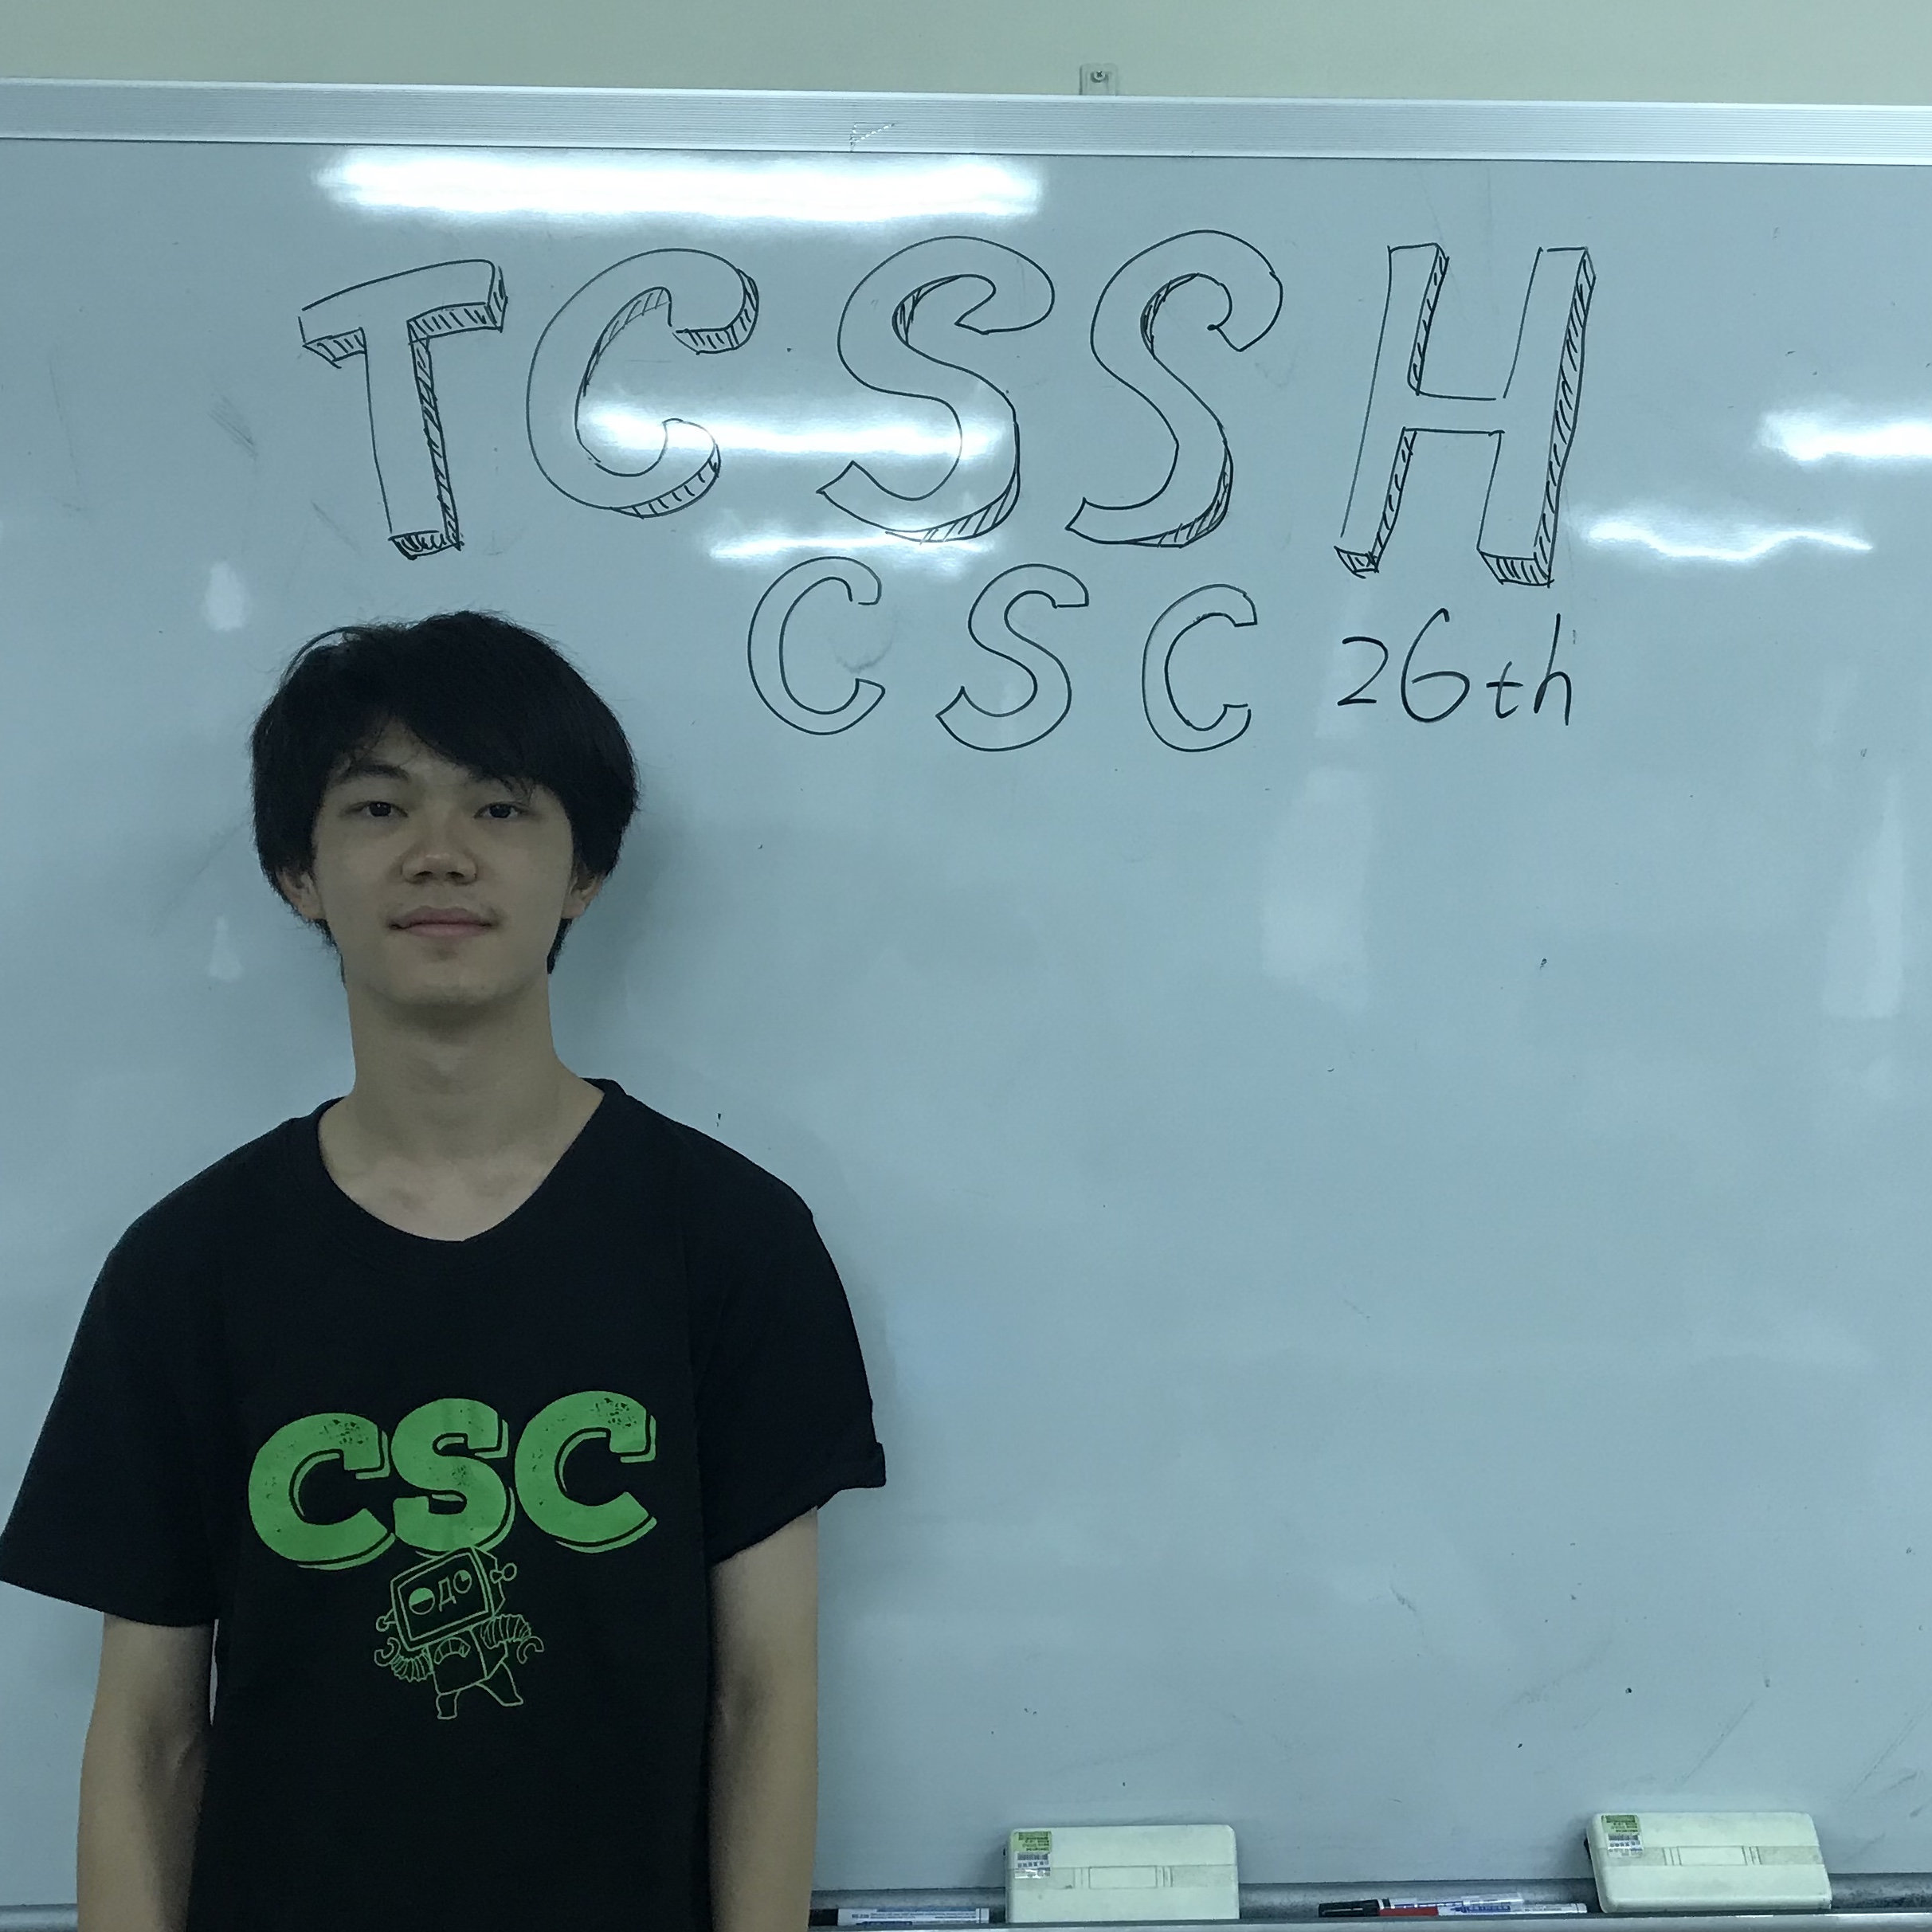 TCSSH
CSC 26th
CSC